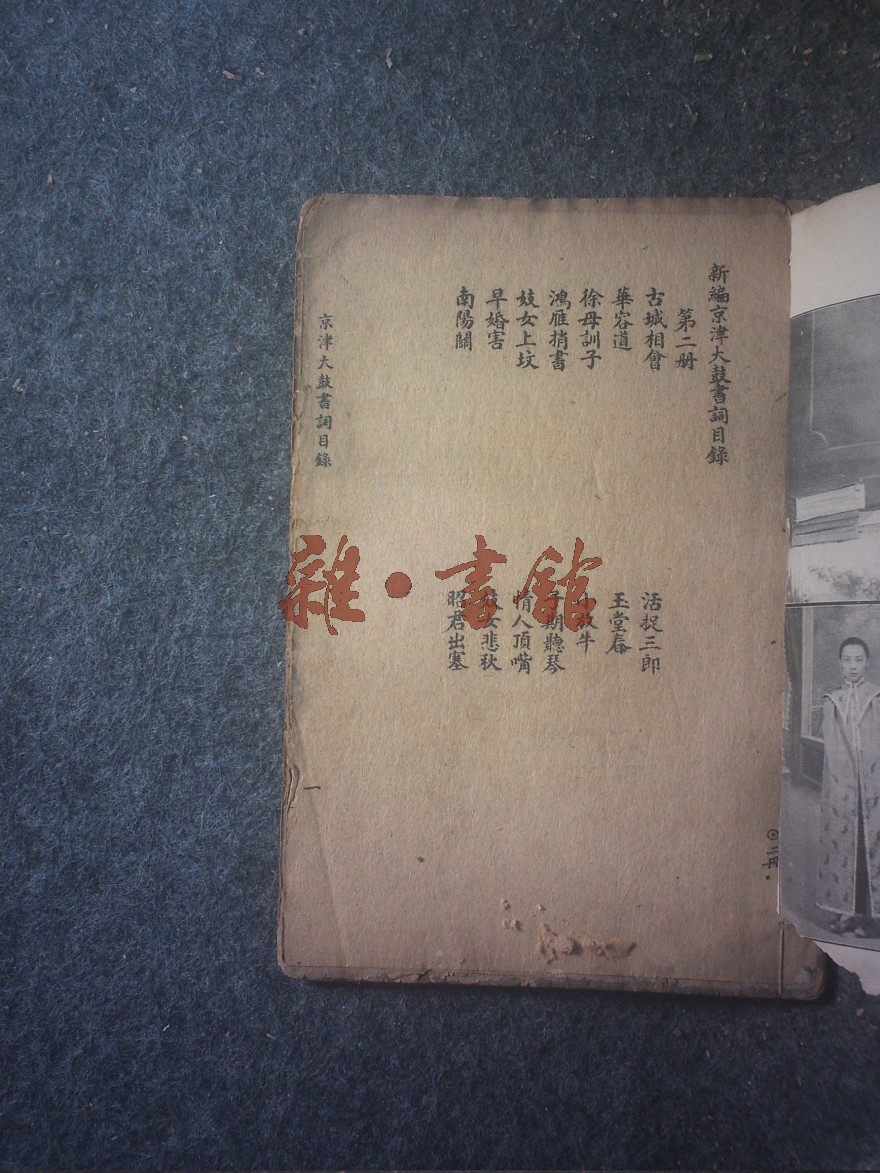 新編京津大鼓書詞目錄
第二册
古城相會
華容道
徐母訓子
鴻雁捎書
妓女上坟
早婚害
南陽關
活捉三郎
玉堂春
放牛
期聽琴
情人頂嘴
女悲秋
昭君出塞
京津大鼓書詞目錄
一
二册
雜·書館